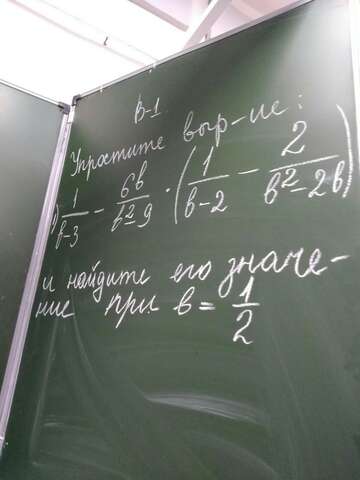 В-1
Упростите выр-ие:
1) 1/(в-3) - 6в/(в²-9) · (1/(в-2) - 2/(в²-2в))
и найдите его значе-
ние при в = 1/2